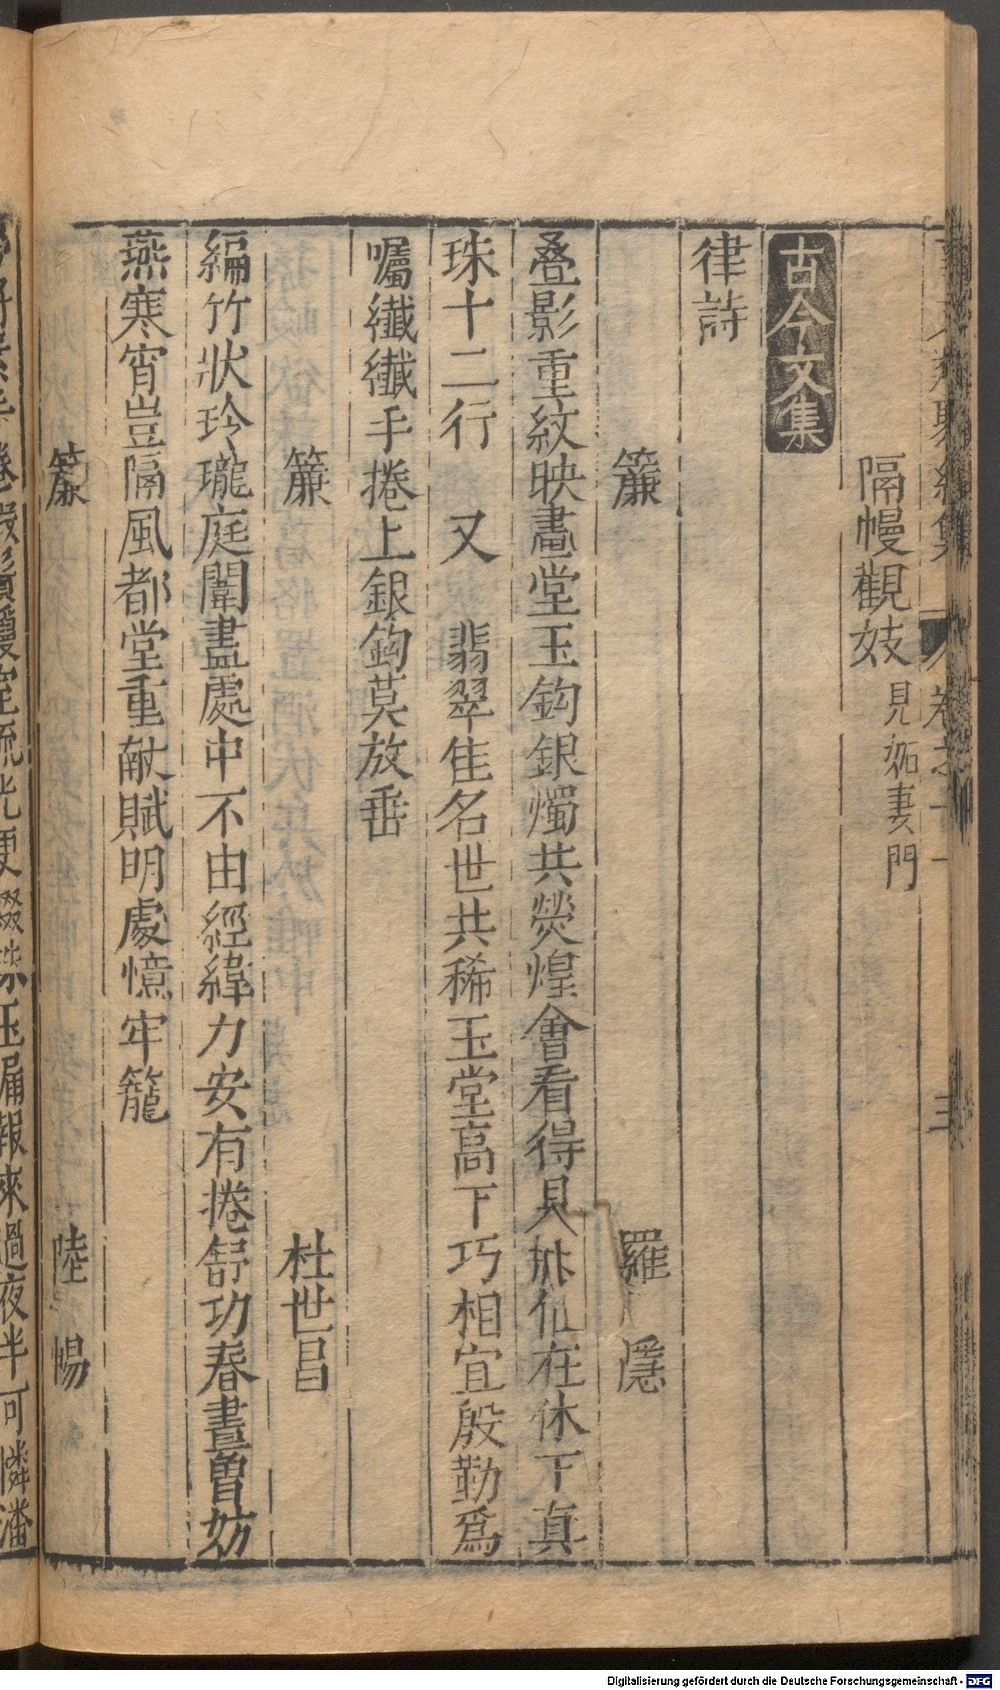 隔幔觀妓見妬妻門
古今文集
律詩
簾 羅隱
叠影重紋映畵堂玉鈎銀燭共熒煌會看得見神仙在休下真
珠十二行 又 翡翠佳名世共稀玉堂高下巧相宜殷勤爲
囑纖纖手捲上銀鈎莫放垂
簾 杜世昌
編竹狀玲瓏庭闈盡處中不由經緯力安有捲舒功春晝曽妨
燕寒宵豈隔風都堂重献賦明處憶牢籠
簾 陸暢
玉漏報來過夜半可憐潘
Digitalisierung gefördert durch die Deutsche Forschungsgemeinschaft - DFG